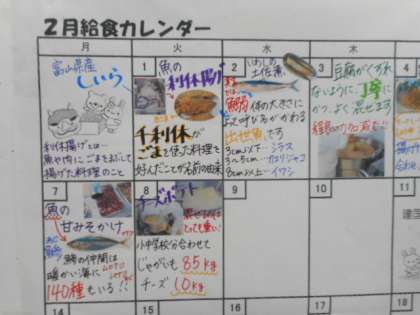 2月給食カレンダー
月 火 水 木
富山県産
しいら
利休揚げとは…
魚や肉にごまをまぶして
揚げた料理のこと
1
魚の
利休揚げ
千利休が
ごまを使った料理を
好んだことが名前の由来
2
いわしの
土佐煮
体の大きさに
よって呼び名がかわる
出世魚です
3cm以下…シラス
カエリジャコ
8cm以上…イワシ
3
豆腐がくずれ
ないように丁寧に
かつ、よく混ぜます
7
魚の
甘みそかけ
鯖の仲間は
暖かい海に
140種もいる!!
8
チーズポテト
混ぜるのが
とっても重い!
小中学校分合わせて
じゃがいも 85kg
チーズ 10kg
9
10
11
14
15
16
17
18